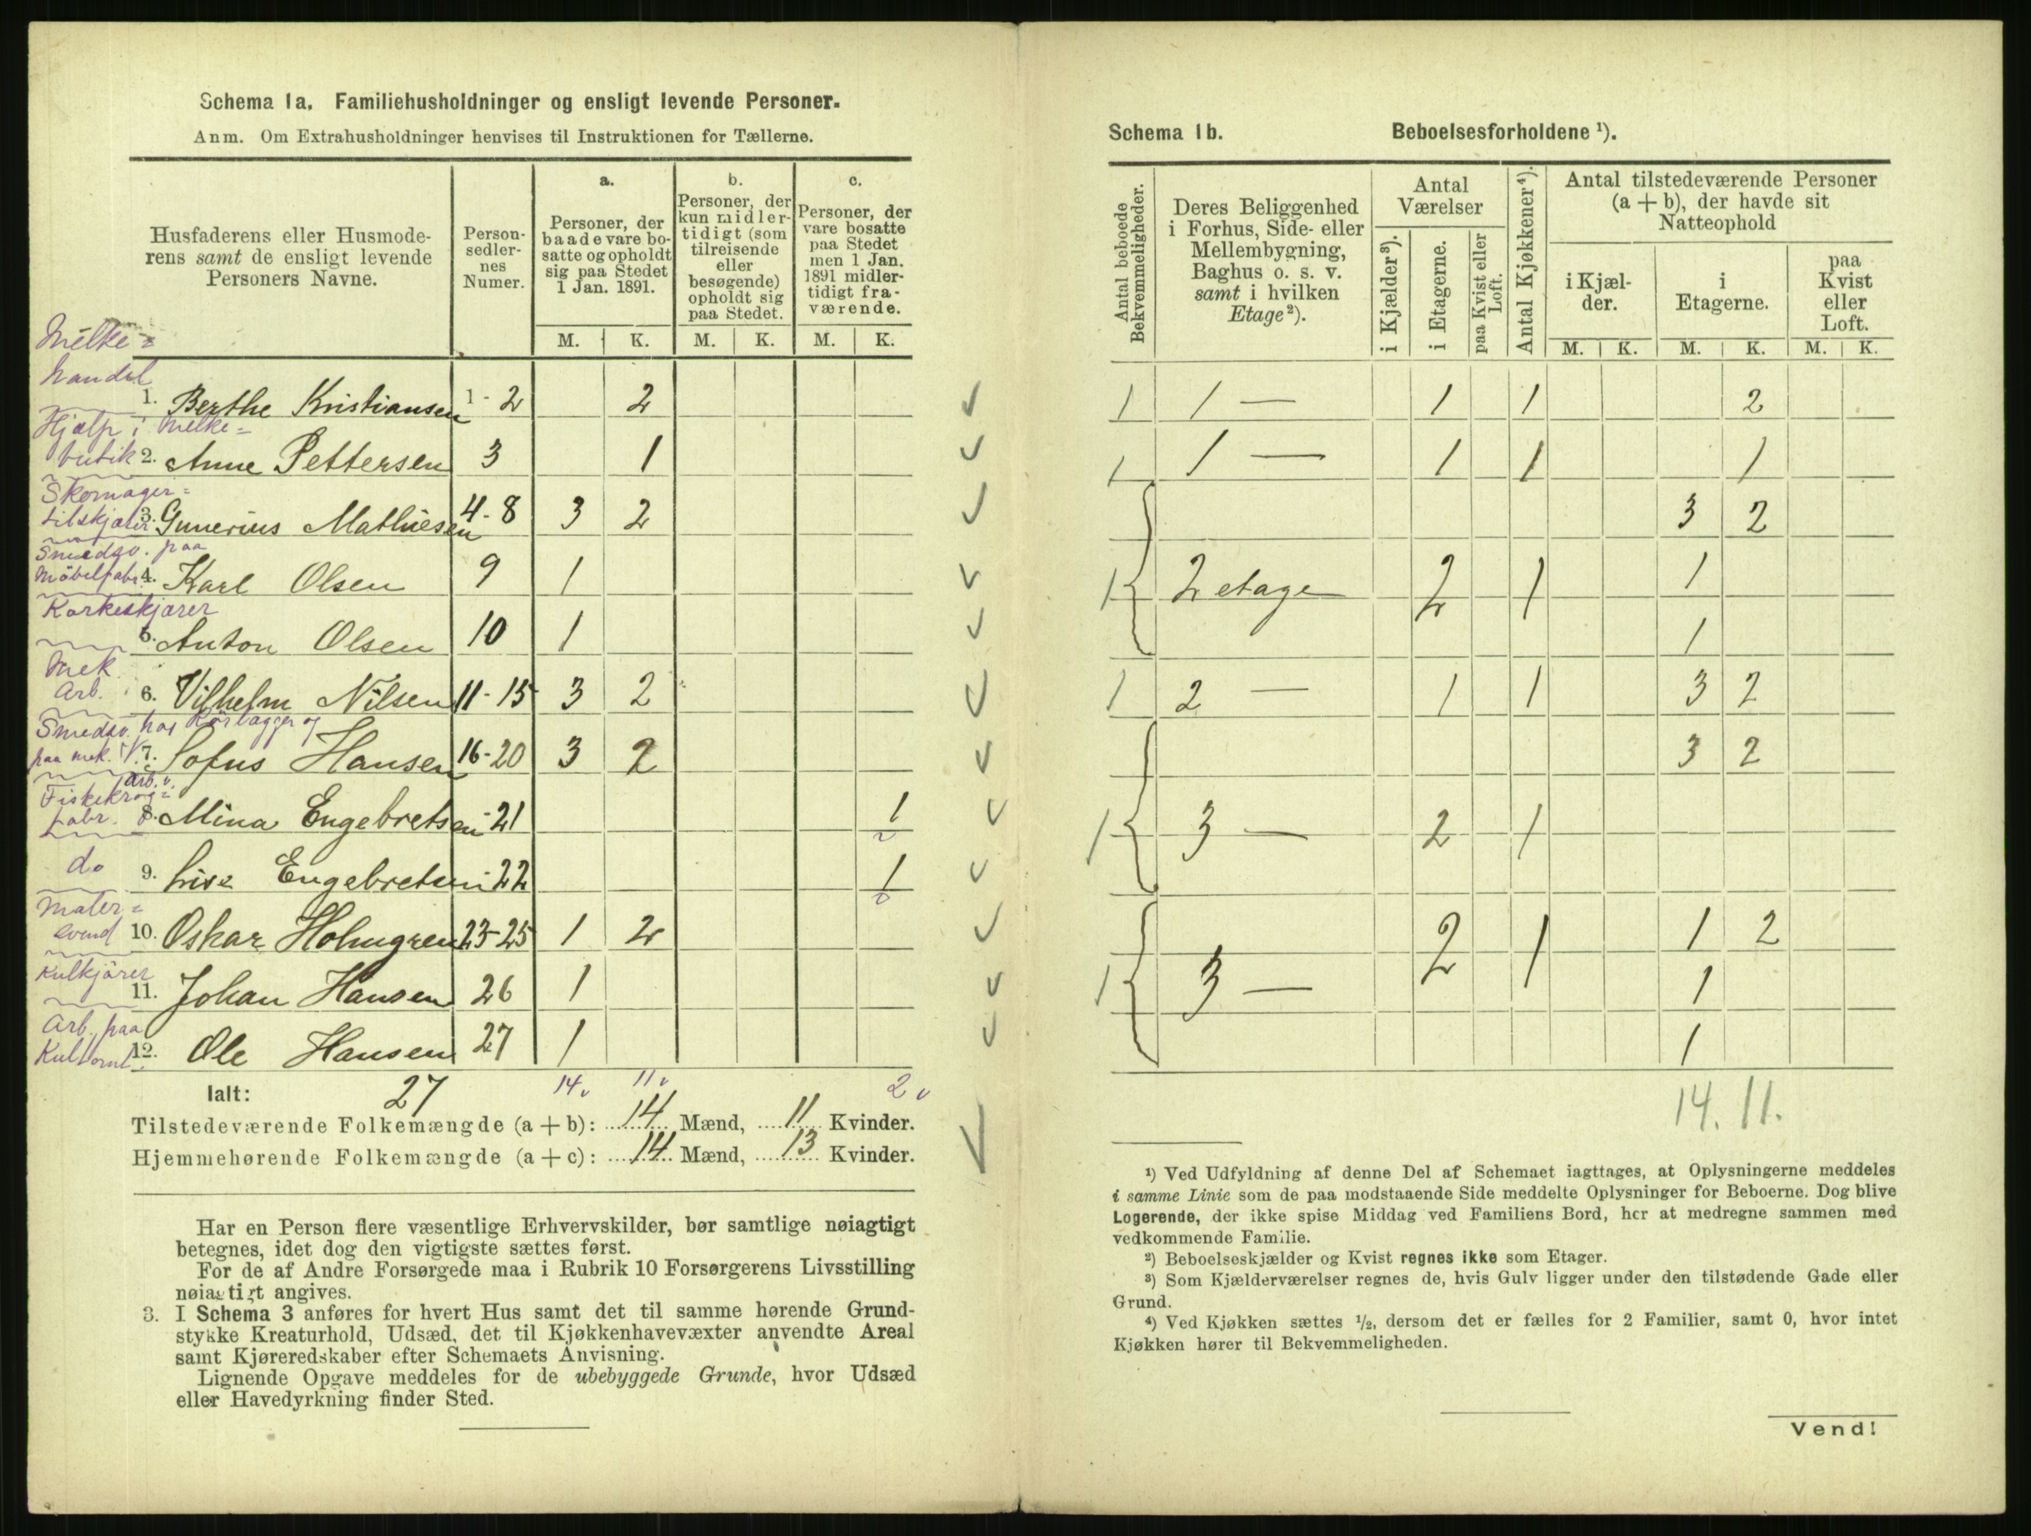 Schema 1a. Familiehusholdninger og ensligt levende Personer.
Anm. Om Extrahusholdninger henvises til Instruktionen for Tællerne.
Husfaderens eller Husmoderens samt de ensligt levende Personers Navne.
Personsedlernes Numer.
a. Personer, der baade vare bosatte og opholdt sig paa Stedet 1 Jan. 1891.
b. Personer, der kun midlertidigt (som tilreisende eller besøgende) opholdt sig paa Stedet.
c. Personer, der vare bosatte paa Stedet men 1 Jan. 1891 midlertidigt fraværende.
M. K. M. K. M. K.
Melke=
handel
1. Berthe Kristiansen 1-2 2
Hjælp i Melke=
butik 2. Anne Pettersen 3 1
Skomager=
tilskjærer 3. Gunerius Mathiesen 4-8 3 2
Smedsv. paa
Möbelfabr. 4. Karl Olsen 9 1
Korkeskjærer
5. Anton Olsen 10 1
Mek.
Arb. 6. Vilhelm Nilsen 11-15 3 2
Smedsv. hos Kårlægger og
paa mek. V. 7. Sofus Hansen 16-20 3 2
Arb. v.
Fiskekrog=
fabr. 8. Mina Engebretsen 21 1
do 9. Lise Engebretsen 22 1
Maler=
svend 10. Oskar Holmgren 23-25 1 2
Kulkjörer
11. Johan Hansen 26 1
Arb. paa
Kultomt. 12. Ole Hansen 27 1
Ialt: 27 14 11 2
Tilstedeværende Folkemængde (a + b): 14 Mænd, 11 Kvinder.
Hjemmehørende Folkemængde (a + c): 14 Mænd, 13 Kvinder.
Har en Person flere væsentlige Erhvervskilder, bør samtlige nøiagtigt
betegnes, idet dog den vigtigste sættes først.
For de af Andre Forsørgede maa i Rubrik 10 Forsørgerens Livsstilling
nøiagtigt angives.
3. I Schema 3 anføres for hvert Hus samt det til samme hørende Grund-
stykke Kreaturhold, Udsæd, det til Kjøkkenhavevæxter anvendte Areal
samt Kjøreredskaber efter Schemaets Anvisning.
Lignende Opgave meddeles for de ubebyggede Grunde, hvor Udsæd
eller Havedyrkning finder Sted.
Schema 1b. Beboelsesforholdene ¹).
Antal beboede Bekvemmeligheder.
Deres Beliggenhed i Forhus, Side- eller Mellembygning, Baghus o. s. v. samt i hvilken Etage²).
Antal Værelser
i Kjælder³).
i Etagerne.
paa Kvist eller Loft.
Antal Kjøkkener⁴).
Antal tilstedeværende Personer (a + b), der havde sit Natteophold
i Kjælder.
i Etagerne.
paa Kvist eller Loft.
M. K. M. K. M. K.
1 1 — 1 1 2
1 1 — 1 1 1
3 2
1 2 etage 2 1 1
1
1 2 — 1 1 3 2
3 2
1 3 — 2 1
2 1 1 2
1 3 — 1
1
14. 11.
¹) Ved Udfyldning af denne Del af Schemaet iagttages, at Oplysningerne meddeles
i samme Linie som de paa modstaaende Side meddelte Oplysninger for Beboerne. Dog blive
Logerende, der ikke spise Middag ved Familiens Bord, her at medregne sammen med
vedkommende Familie.
²) Beboelseskjælder og Kvist regnes ikke som Etager.
³) Som Kjælderværelser regnes de, hvis Gulv ligger under den tilstødende Gade eller
Grund.
⁴) Ved Kjøkken sættes ½, dersom det er fælles for 2 Familier, samt 0, hvor intet
Kjøkken hører til Bekvemmeligheden.
Vend!